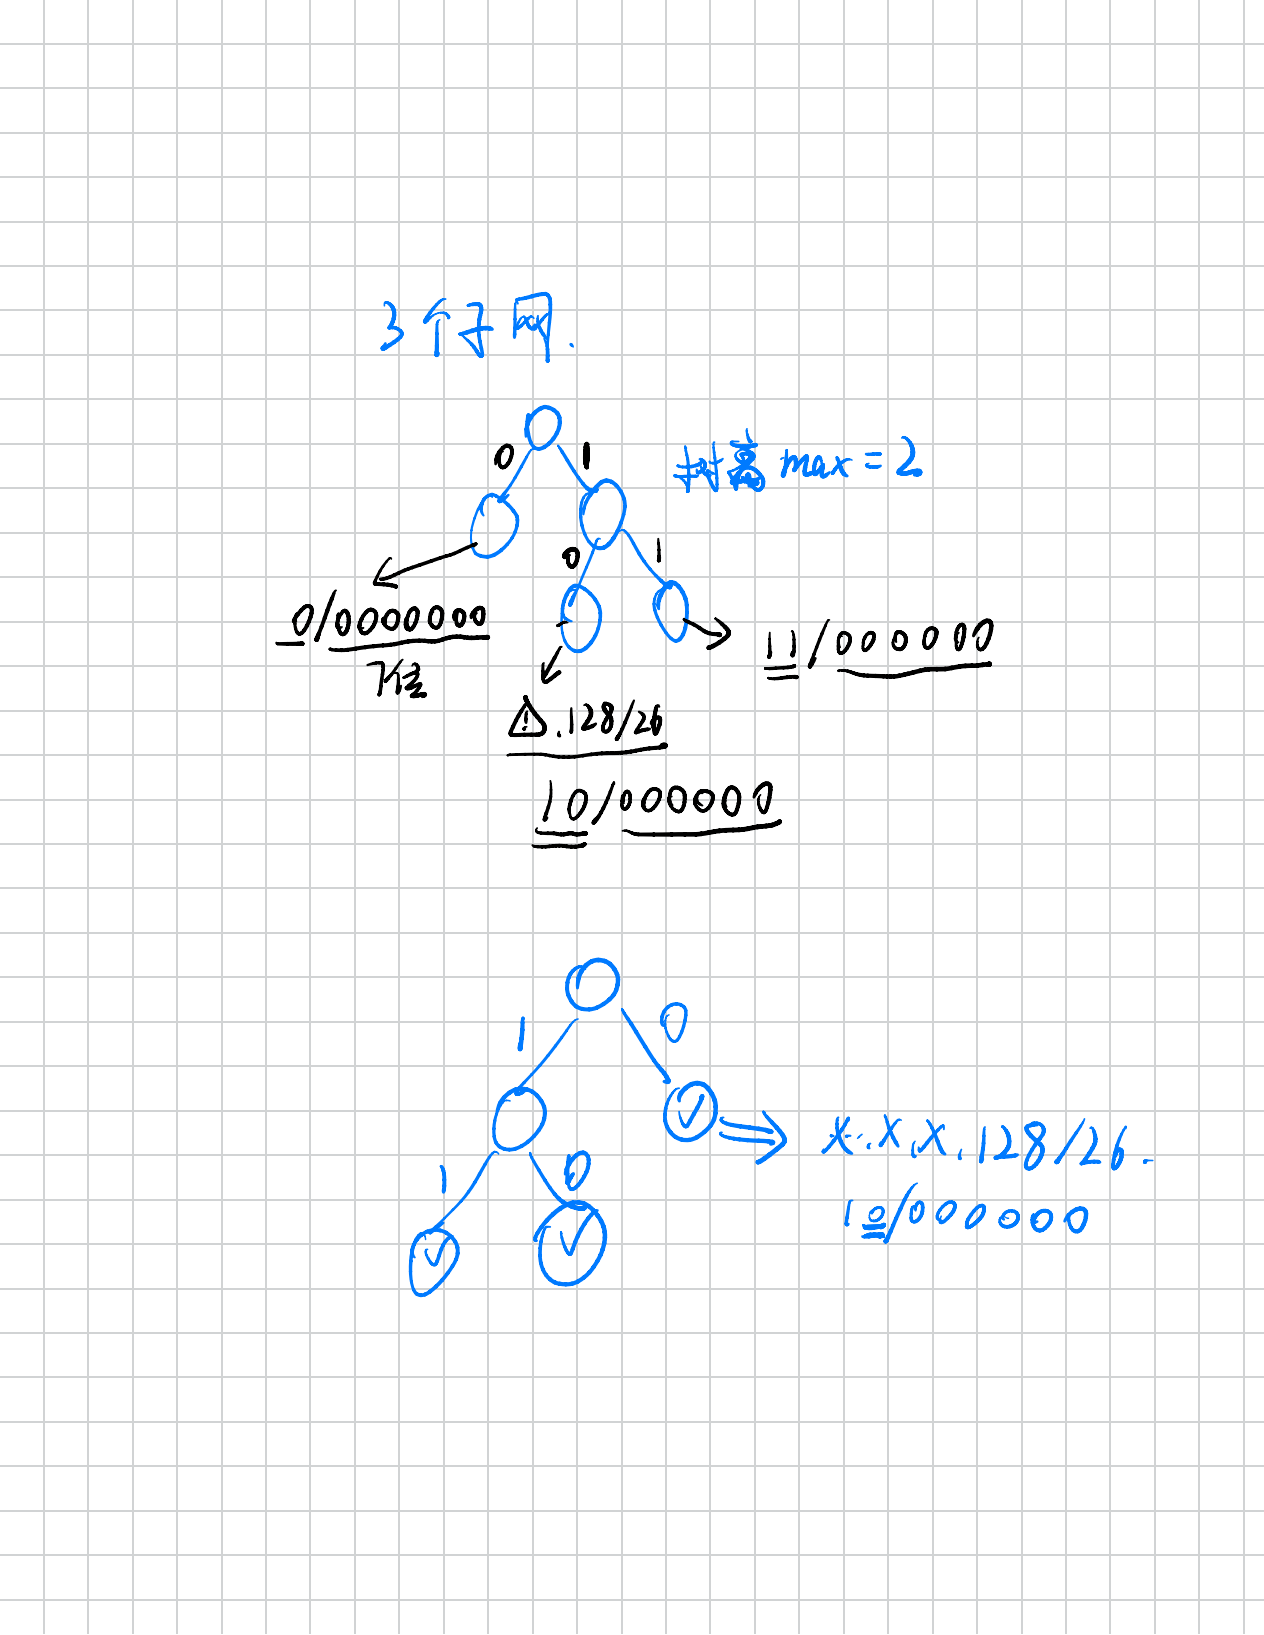 3个子网.
0 1
树高max=2
0 1
0/0000000
11/000000
7位
⚠.128/26
10/000000
1 0
X.X.X.128/26.
1 0
10/000000